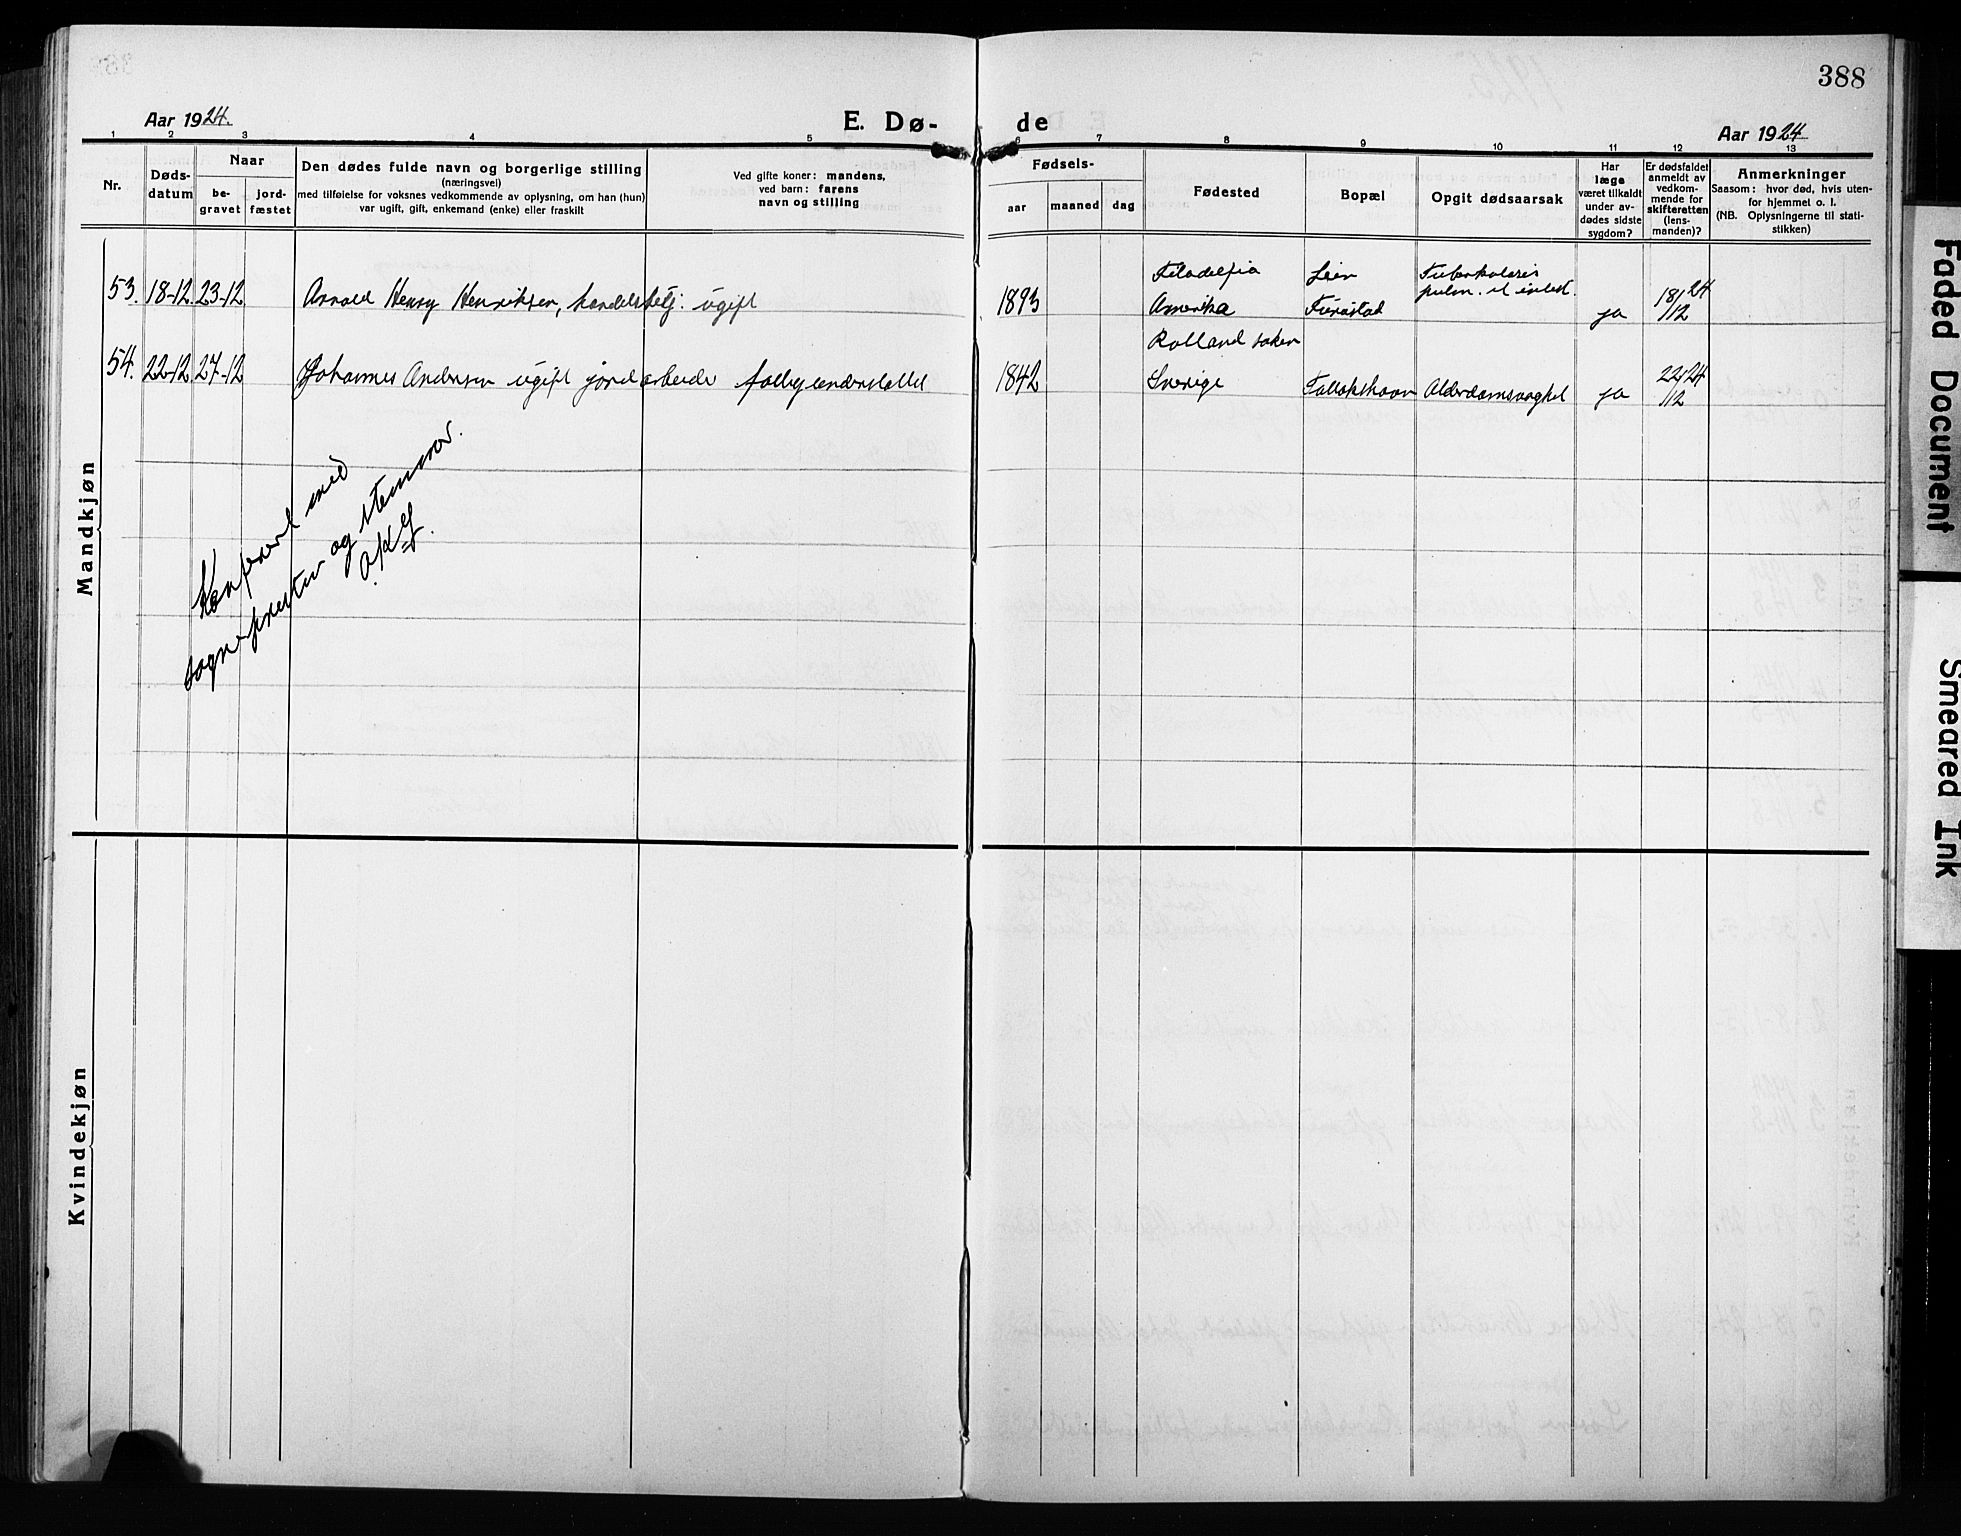 388
Aar 1924.
E. Dø-
de
Aar 1924
1 2 3 4 5 6 7 8 9 10 11 12 13
Nr.
Døds-
datum
Naar
be-
gravet
jord-
fæstet
Den dødes fulde navn og borgerlige stilling
(næringsvei)
med tilføielse for voksnes vedkommende av oplysning, om han (hun)
var ugift, gift, enkemand (enke) eller fraskilt
Ved gifte koner: mandens,
ved barn: farens
navn og stilling
Fødsels-
aar
maaned
dag
Fødested
Bopæl
Opgit dødsaarsak
Har
læge
været tilkaldt
under av-
dødes sidste
sygdom?
Er dødsfaldet
anmeldt av
vedkom-
mende for
skifteretten
(lens-
manden)?
Anmerkninger
Saasom: hvor død, hvis uten-
for hjemmet o. l.
(NB. Oplysningerne til stati-
stikken)
Mandkjøn
Filadelfia Lier Tuberkulosis
53. 18-12 23-12 Arnold Henry Henriksen, handelsbetj: ugift 1893 Amerika pulm. et ja 18/12 24
54. 22-12 27-12 Johannes Andersen ugift jordarbeide 1842 Sverige Alderdomsvaghet ja 22/12 24
Konferert med
sognepresten og stemmer.
Kvindekjøn
Faded Document
Smeared Ink